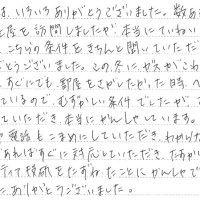 は、いろいろありがとうございました。数あ
産を訪問しましたが、本当にていねい
、こちらの条件をきちんと聞いていただ
とうございました。この冬に、
すぐにでも、部屋をさがしたった時、
ているので、むずかしい条件でしたが、
ていただき、本当にかんしゃしています。
や電話もこまめにしていただき、わからな
あればすぐに対応していただき、たすかり
ティブ技研をたずねたことにかんしゃで
にありがとうございました。